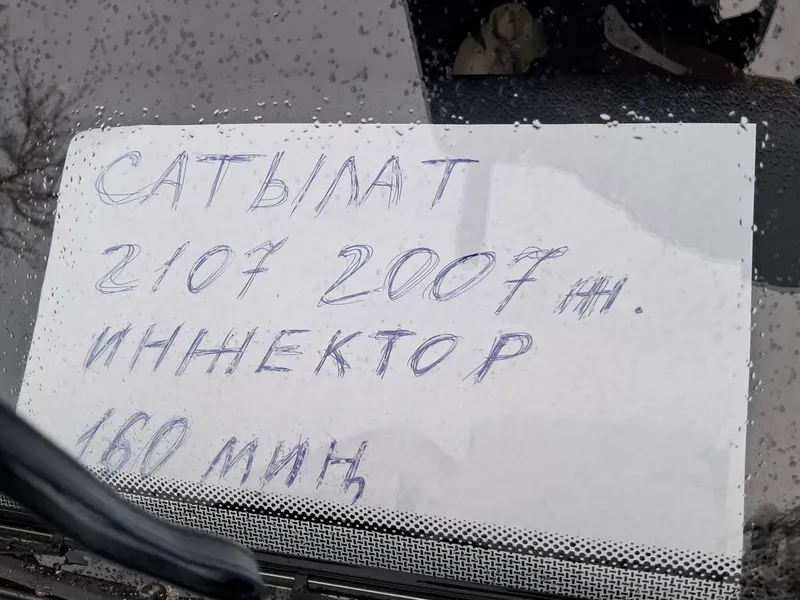 САТЫЛАТ
2107 2007 ж.
ИНЖЕКТОР
160 МИҢ